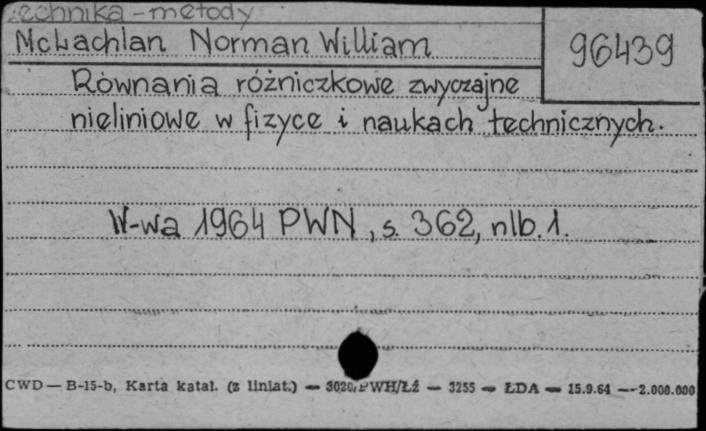 technika - metody
McLachlan Norman William
96439
Równania różniczkowe zwyczajne
nieliniowe w fizyce i naukach technicznych.
W-wa 1964 PWN, s. 362, nlb. 1.
CWD — B-15-b, Karta katal. (z liniat.) — 3020/PWH/Łź — 3255 — ŁDA — 15.9.64 — 2.000.000